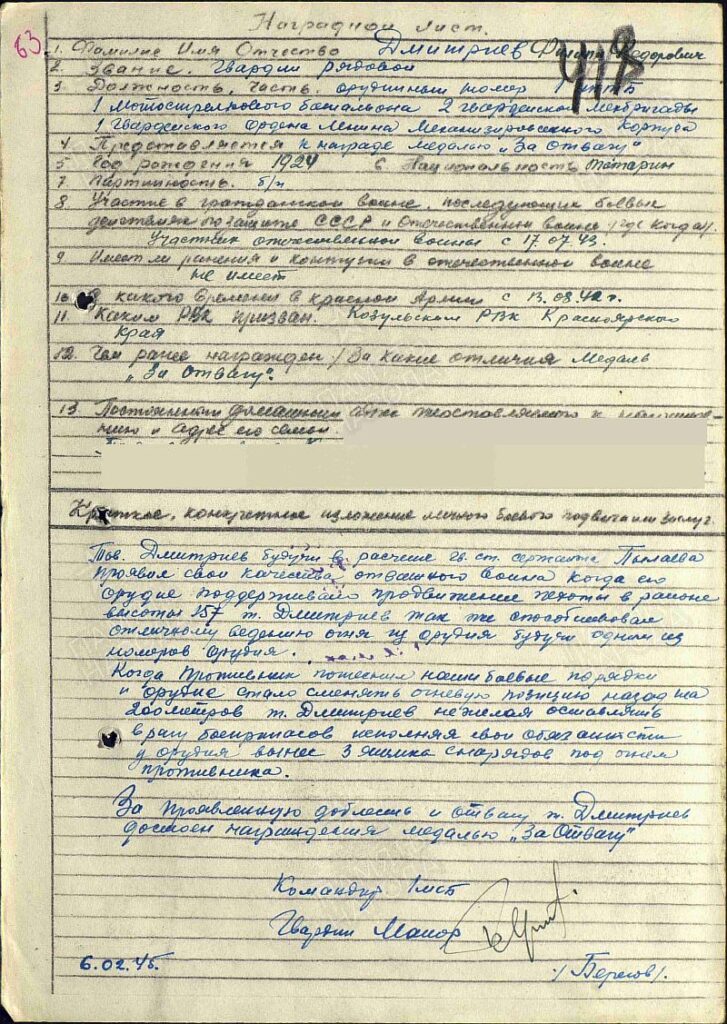 Наградной лист.
63
1. Фамилие Имя Отчество Дмитриев Филипп Федорович
2. Звание. Гвардии рядовой
3. Должность, часть. орудийный номер
1 мотострелкового батальона 2 гвардейской мехбригады
1 Гвардейского Ордена Ленина Механизированного Корпуса
4. Представляется к награде медалью „За Отвагу"
5 Год рождения 1924 6 Национальность татарин
7 Партийность. б/п
8 Участие в гражданской войне, последующих боевых
действиях по защите СССР и Отечественной войне /где когда/.
Участник отечественной войны с 17.07.43.
9 Имеет ли ранения и контузии в отечественной войне
не имеет
10 С какого времени в Красной Армии с 13.08.42 г.
11 Каким РВК призван. Козульским РВК Красноярского
Края
12. Чем ранее награжден /За какие отличия медаль
„За Отвагу".
13. Постоянный домашний адрес представляемого к
и адрес его семьи.
Краткое, конкретное изложение личного боевого подвига или заслуг.
Тов. Дмитриев будучи в расчете гв. ст. сержанта Пылаева
проявил свои качества отважного воина когда его
орудие поддерживало продвижение пехоты в районе
высоты 157 т. Дмитриев так же способствовал
отличному ведению огня из орудия будучи одним из
номеров орудия.
Когда противник потеснил наши боевые порядки
и орудие стало сменять огневую позицию назад на
200 метров т. Дмитриев не желая оставлять
врагу боеприпасов исполняя свои обязаности
у орудия вынес 3 ящика снарядов под огнем
противника.
За проявленную доблесть и отвагу т. Дмитриев
достоен награждения медалью „За Отвагу"
Командир 1 мсб
Гвардии Маиор
6.02.45. /Берегов/.